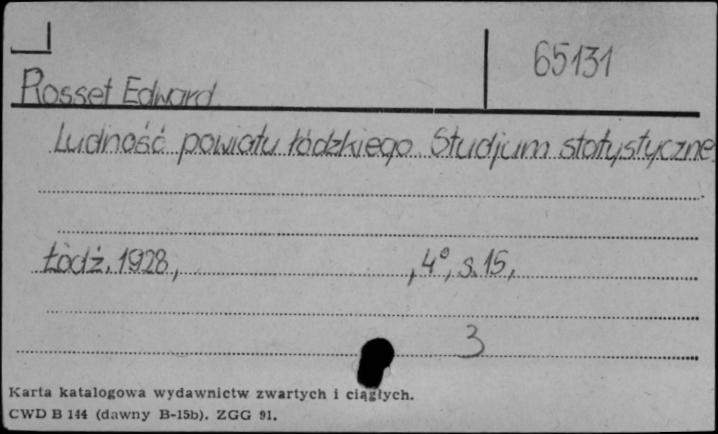 65131
Rosset Edward
Ludność powiatu łódzkiego. Studjum statystyczne.
Łódź, 1928, , 4°, s. 15,
3
Karta katalogowa wydawnictw zwartych i ciągłych.
CWD B 144 (dawny B-15b). ZGG 91.